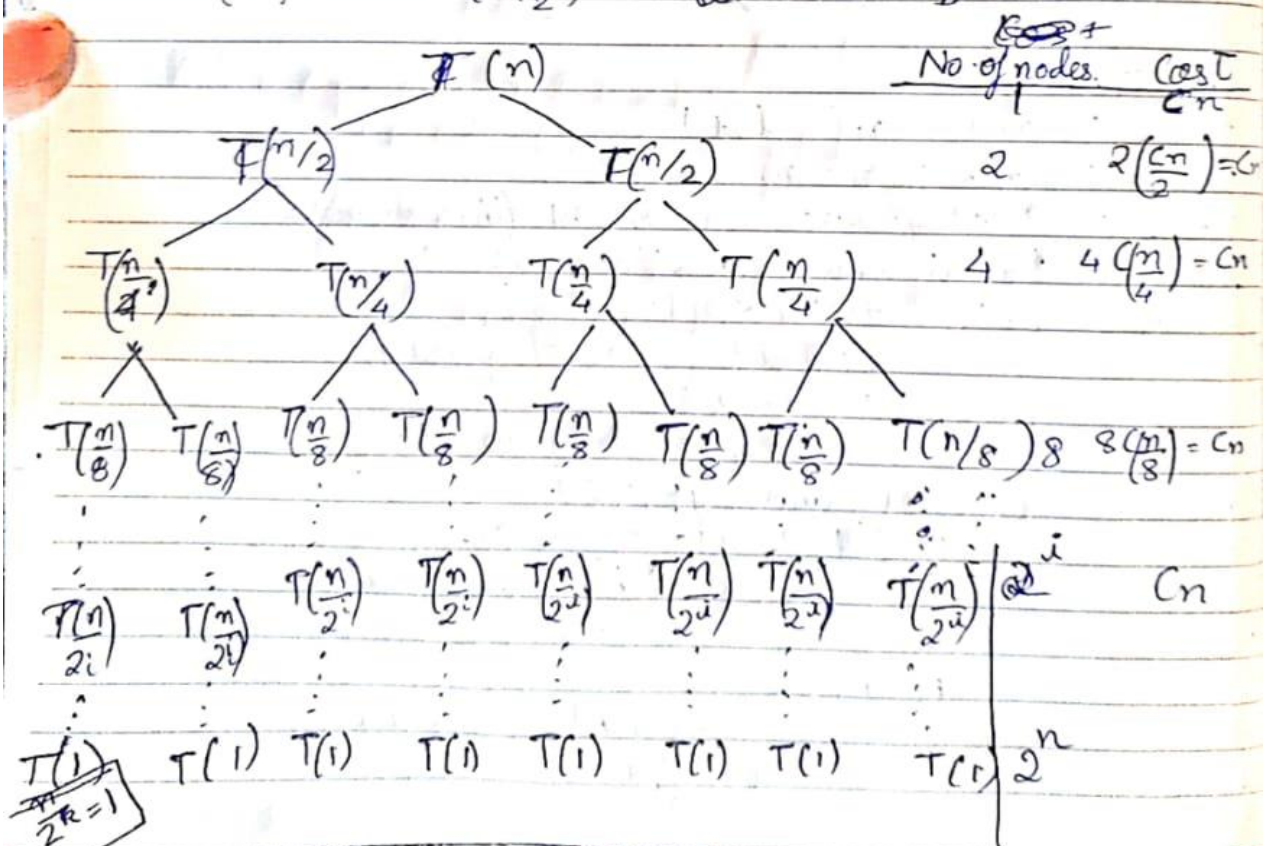 No. of nodes. Cost
T(n) 1 Cn
T(n/2) T(n/2) 2 2(Cn/2)=C
T(n/4) T(n/4) T(n/4) T(n/4) 4 4 C(n/4) = Cn
T(n/8) T(n/8) T(n/8) T(n/8) T(n/8) T(n/8) T(n/8) T(n/8) 8 8 C(n/8) = Cn
T(n/2i) T(n/2i) T(n/2^i) T(n/2^i) T(n/2^i) T(n/2^i) T(n/2^i) T(n/2^i) 2^i Cn
T(1) T(1) T(1) T(1) T(1) T(1) T(1) T(1) 2^n
n/2^k = 1